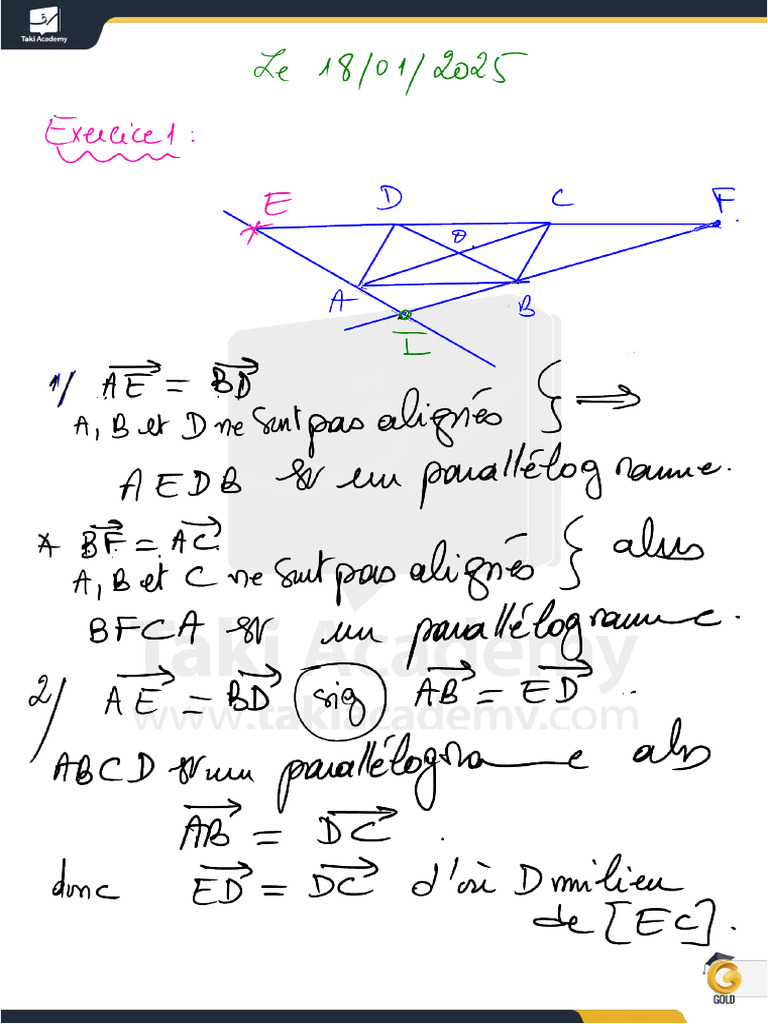 Taki Academy
Le 18/01/2025
Exercice 1 :
E D C F
O
A B
I
1/ AE = BD
A, B et D ne sunt pas alignés } ⟹
AEDB est un parallélogramme.
* BF = AC
A, B et C ne sunt pas alignés } alors
BFCA est un parallélogramme.
Taki Academy
2/ AE = BD sig AB = ED
www.takiacademy.com
ABCD est un parallélogramme alors
AB = DC
donc ED = DC d'où D milieu
de [EC].
GOLD